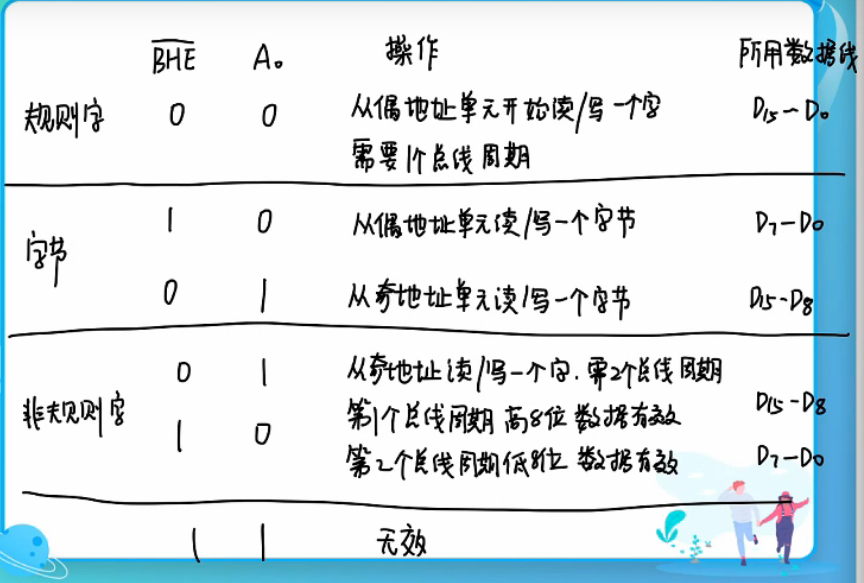 BHE A₀ 操作 所用数据线
规则字 0 0 从偶地址单元开始读/写一个字 D₁₅-D₀
需要1个总线周期
字节 1 0 从偶地址单元读/写一个字节 D₇-D₀
0 1 从奇地址单元读/写一个字节 D₁₅-D₈
非规则字 0 1 从奇地址读/写一个字.需2个总线周期
第1个总线周期 高8位数据有效 D₁₅-D₈
1 0 第2个总线周期低8位数据有效 D₇-D₀
1 1 无效